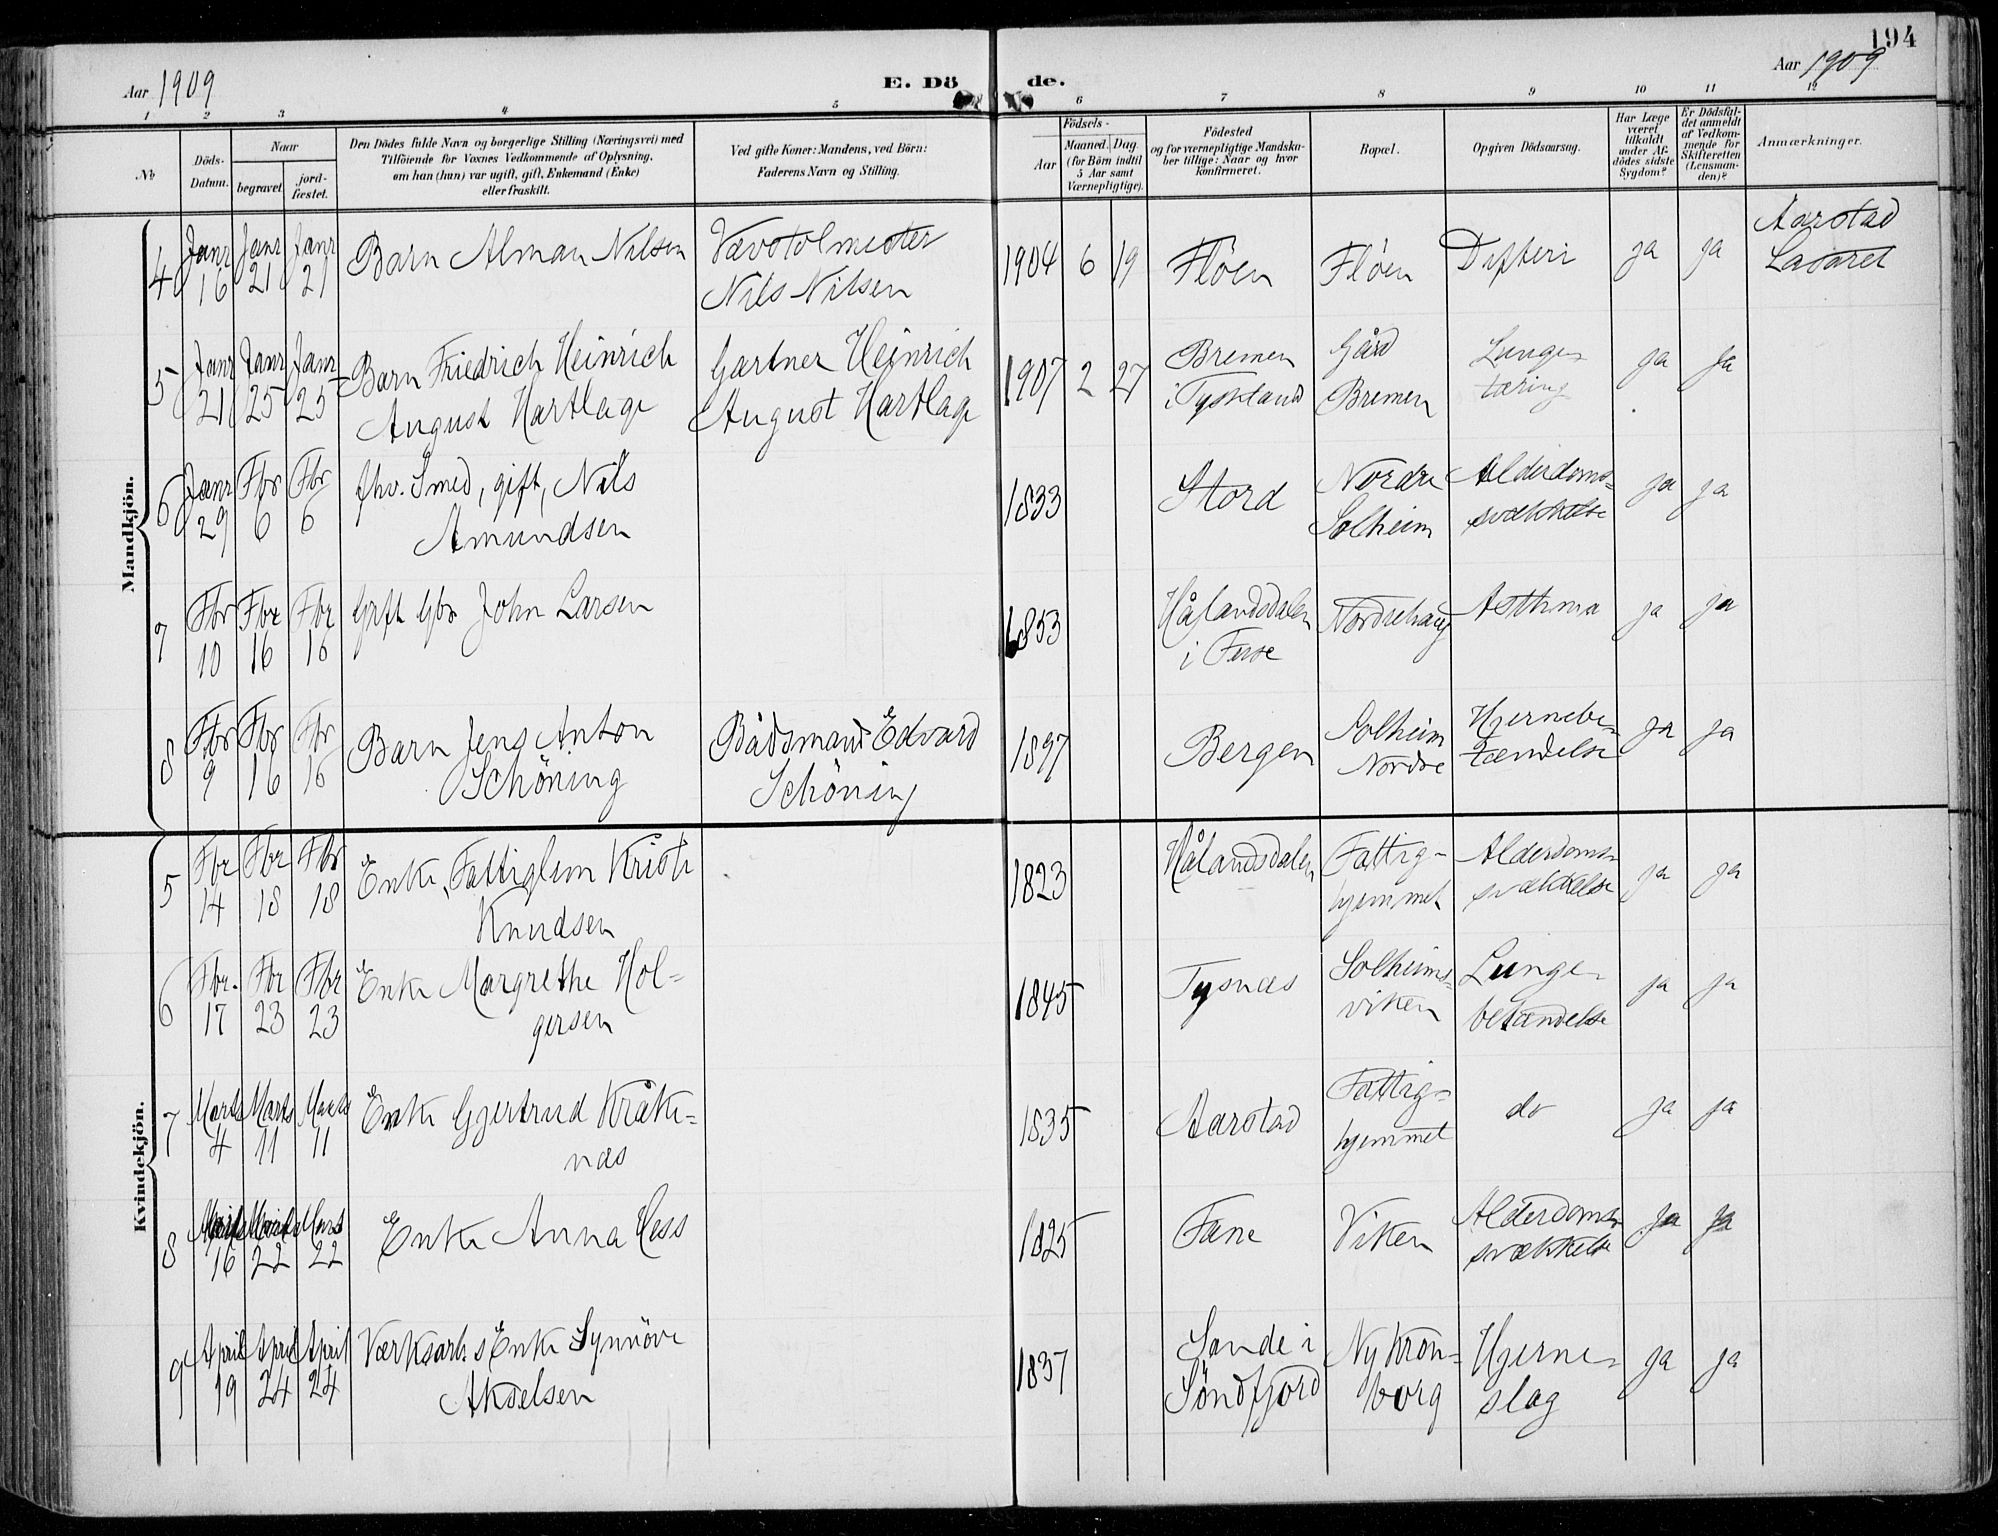 194
Aar 1909
E. Döde.
Aar 1909
1 2 3 4 5 6 7 8 9 10 11 12
No
Döds-
Datum.
Naar
begravet.
jord-
fæstet.
Den Dödes fulde Navn og borgerlige Stilling (Næringsvei) med
Tilföiende for Voxnes Vedkommende af Oplysning,
om han (hun) var ugift, gift, Enkemand (Enke)
eller fraskilt.
Ved gifte Koner: Mandens, ved Börn:
Faderens Navn og Stilling.
Födsels-
Aar
Maaned. Dag.
(for Börn indtil
5 Aar samt
Værnepligtige).
Födested
og for værnepligtige Mandska-
ber tillige: Naar og hvor
konfirmeret.
Bopæl.
Opgiven Dödsaarsag.
Har Læge
været
tilkaldt
under Af-
dödes sidste
Sygdom?
Er Dödsfal-
det anmeldt
af Vedkom-
mende for
Skifteretten
(Lensman-
den)?
Anmærkninger.
Mandkjön.
4 Janr 16 Janr 21 Janr 21 Barn Alman Nilsen Vævstolmester
Nils Nilsen
1904 6 19 Flöen Flöen Difteri ja ja Aarstad
Lasaret
5 Janr 21 Janr 25 Janr 25 Barn Friedrich Heinrich
August Hartlage
Gartner Heinrich
August Hartlage
1907 2 27 Bremen
i Tyskland
Gård
Bremen
Lunge-
tæring
ja ja
6 Janr 29 Fbr 6 Fbr 6 fhv. Smed, gift, Nils
Amundsen
1833 Stord Nordre
Solheim
Alderdoms-
svækkelse
ja ja
7 Fbr 10 Fbr 16 Fbr 16 Gift Gbr John Larsen
1853 Hålandsdalen
i Fuse
Nordrehaug Asthma ja ja
8 Fbr 9 Fbr 16 Fbr 16 Barn Jens Anton
Schöning
Bådsmand Edvard
Schöning
1897 Bergen Solheim
Nordre
Hjernebe-
tændelse
ja ja
Kvindekjön.
5 Fbr 14 Fbr 18 Fbr 18 Enke, Fattiglem Kristi
Knudsen
1823 Hålandsdalen Fattig-
hjemmet
Alderdoms-
svækkelse
ja ja
6 Fbr. 17 Fbr 23 Fbr 23 Enke Margrethe Hol-
gersen
1845 Tysnæs Solheims-
viken
Lunge-
betændelse
ja ja
7 Marts 4 Marts 11 Marts 11 Enke Gjertrud Kråke-
næs
1835 Aarstad Fattig-
hjemmet
do ja ja
8 Marts 16 Marts 22 Mars 22 Enke Anna Hess
1825 Fane Viken Alderdoms-
svækkelse
ja ja
9 April 19 April 24 April 24 Værksarb.s Enke Synnöve
Akselsen
1837 Sande i
Söndfjord
Ny Kron-
borg
Hjerne-
slag
ja ja